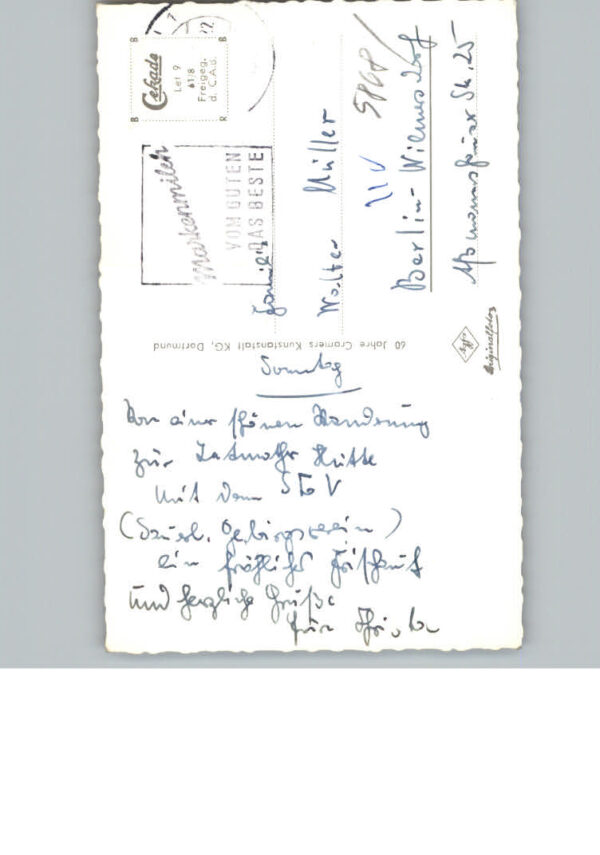 Cekade
Let 9
61/8
Freigeg.
d. C.A.u.
B B
B R
12
Markenmilch
VOM GUTEN
DAS BESTE
Familie
Walter Müller
Berlin-Wilmersdorf
Str. 25
60 Jahre Cramers Kunstanstalt KG, Dortmund
Agfa
Originalfoto
Sonntag
Von einer schönen Wanderung
zur Hütte
mit dem SGV
(Sauerl. Gebirgsverein)
ein fröhliches Frischauf
und herzliche Grüße